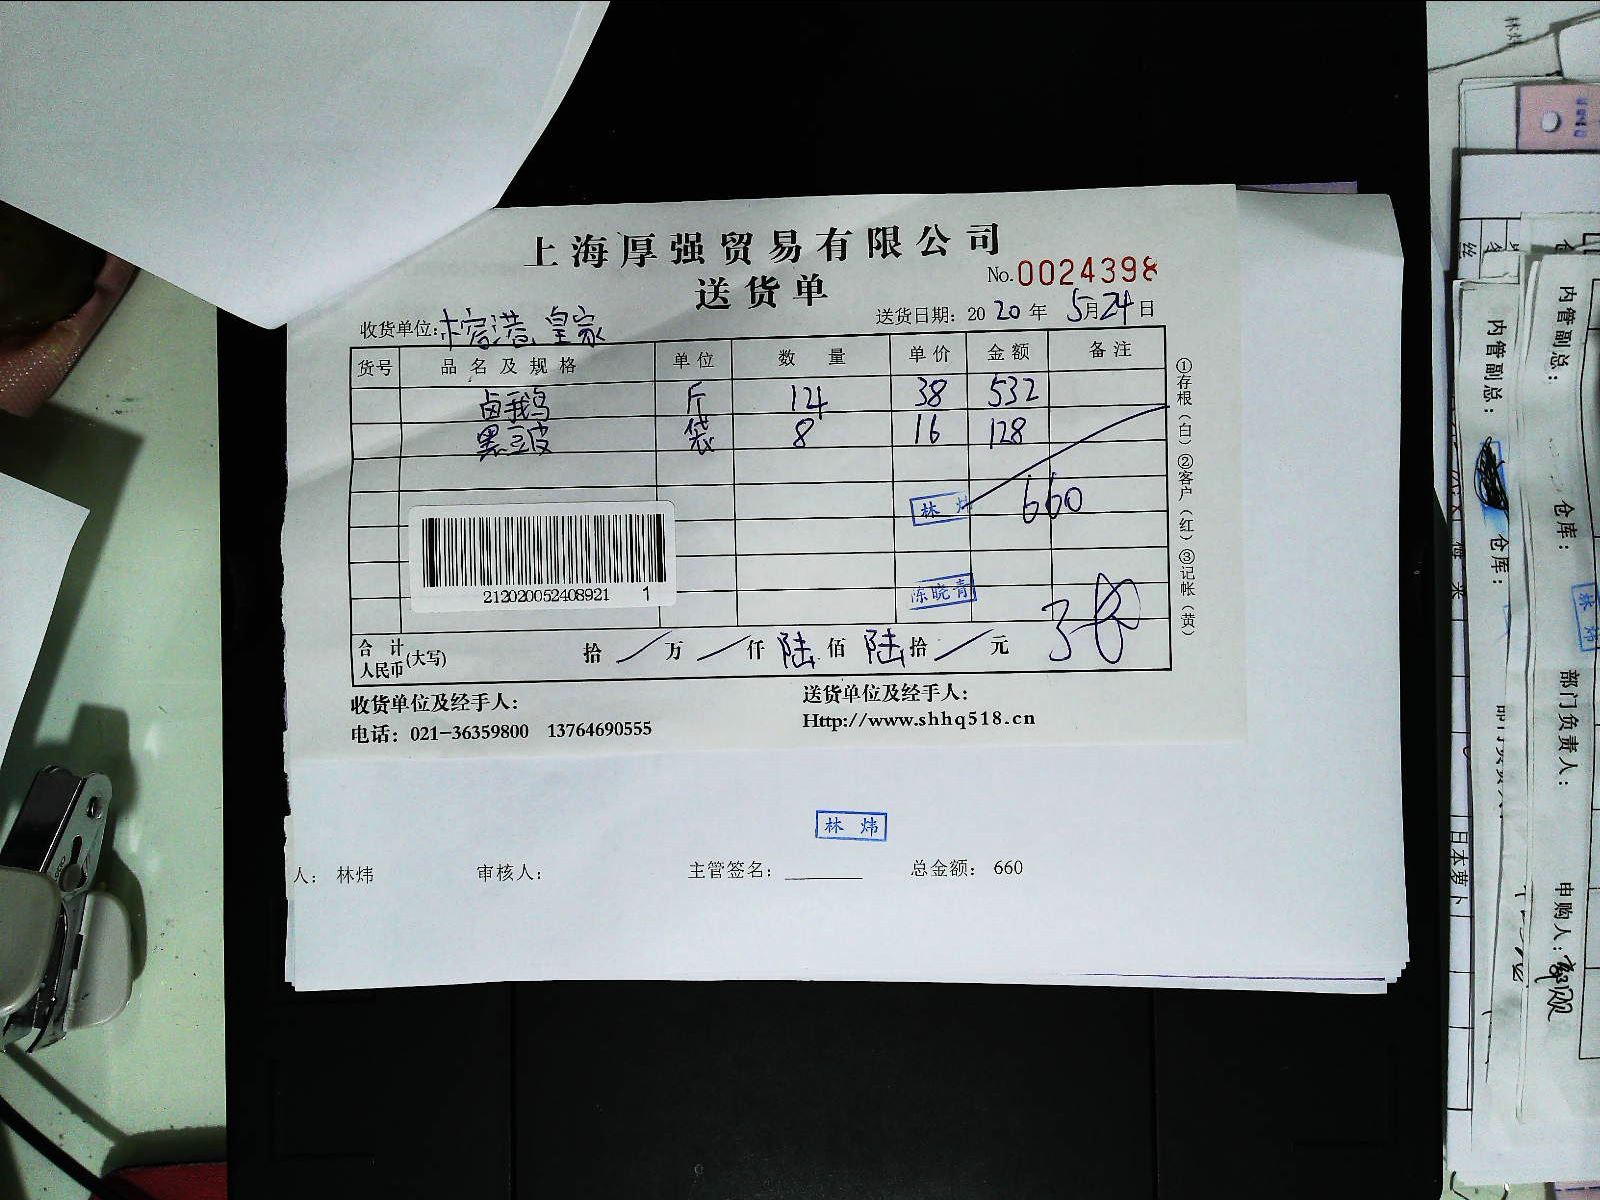 上海厚强贸易有限公司
送货单
No.0024398
收货单位:榕港 皇家
送货日期: 2020年 5月24日
货号 品名及规格 单位 数量 单价 金额 备注
卤鹅 斤 14 38 532
黑豆皮 袋 8 16 128
林炜
660
212020052408921 1
陈晓青
合计人民币(大写) 拾 / 万 / 仟 陆 佰 陆 拾 / 元
收货单位及经手人:
送货单位及经手人:
电话: 021-36359800 13764690555
Http://www.shhq518.cn
①存根(白) ②客户(红) ③记帐(黄)
林炜
人: 林炜 审核人: 主管签名: 总金额: 660
内管副总:
仓库:
内管副总:
仓库:
林炜
部门负责人:
申购人:
日本萝卜